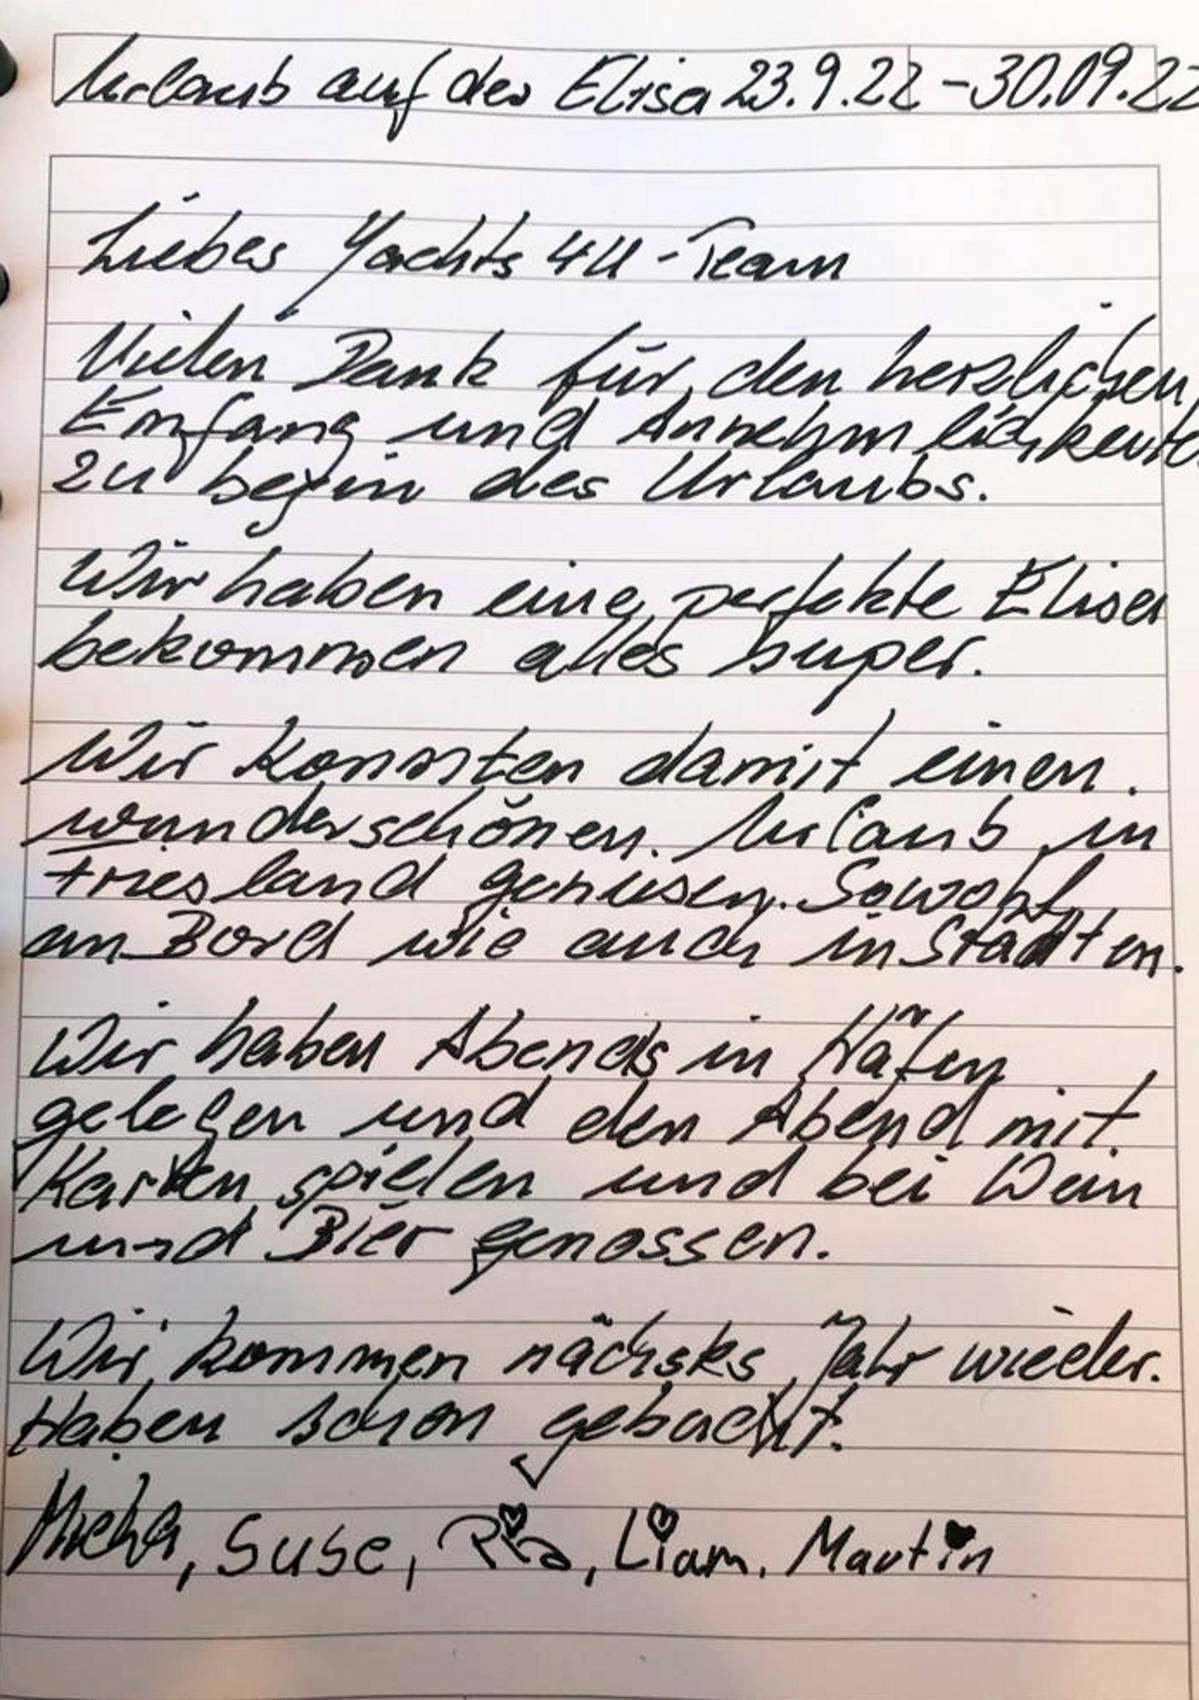 Urlaub auf der Elisa 23.9.22 - 30.09.22
Liebes Yachts 4U - Team
Vielen Dank für den herzlichen
Emfang und Annehmlichkeite
zu begin des Urlaubs.
Wir haben eine perfekte Elisa
bekommen alles super.
Wir konnten damit einen
wunderschönen Urlaub in
Friesland geniesen. Sowohl
an Bord wie auch in Städten.
Wir haben Abends in Häfen
gelegen und den Abend mit
Karten spielen und bei Wein
und Bier genossen.
Wir kommen nächstes Jahr wieder.
Haben schon gebucht.
Micha, Suse, Pia, Liam, Martin